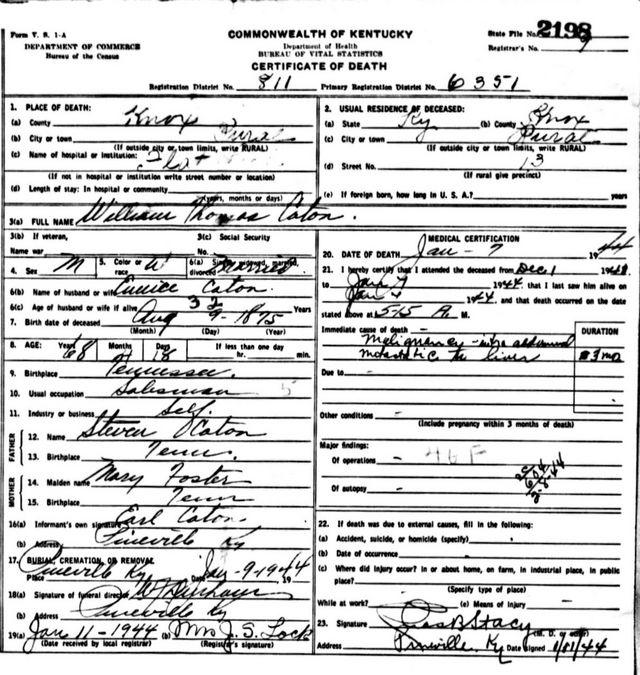 Form V. S. 1-A
DEPARTMENT OF COMMERCE
Bureau of the Census
COMMONWEALTH OF KENTUCKY
Department of Health
BUREAU OF VITAL STATISTICS
CERTIFICATE OF DEATH
State File No. 2198
Registrar's No. 9
Registration District No. 811 Primary Registration District No. 6351
1. PLACE OF DEATH:
(a) County Knox
(b) City or town Rural
(If outside city or town limits, write RURAL)
(c) Name of hospital or institution: Flat
(If not in hospital or institution write street number or location)
(d) Length of stay: In hospital or community
(years, months or days)
2. USUAL RESIDENCE OF DECEASED:
(a) State Ky (b) County Knox
(c) City or town Rural
(If outside city or town limits, write RURAL)
(d) Street No. 13
(If rural give precinct)
(e) If foreign born, how long in U. S. A.? years
3(a) FULL NAME William Thomas Caton.
3(b) If veteran,
Name war
3(c) Social Security
No.
4. Sex M 5. Color or race W 6(a) Single, widowed, married, divorced Married
6(b) Name of husband or wife Eunice Caton.
6(c) Age of husband or wife if alive 32 Years
7. Birth date of deceased Aug 9-1875
(Month) (Day) (Year)
8. AGE: Years 68 Months 4 Days 18 If less than one day
hr. min.
9. Birthplace Tennessee.
10. Usual occupation Salesman 5
11. Industry or business Self.
FATHER
12. Name Steven Caton
13. Birthplace Tenn.
MOTHER
14. Maiden name Mary Foster
15. Birthplace Tenn
16(a) Informant's own signature Earl Caton.
(b) Address Pineville Ky
17. BURIAL, CREMATION, OR REMOVAL
Place Pineville Ky Date Jan-9-1944 19
18(a) Signature of funeral director
(b) Address Pineville Ky
19(a) Jan 11-1944 (b) Mrs J. S. Lock
(Date received by local registrar) (Registrar's signature)
MEDICAL CERTIFICATION
20. DATE OF DEATH Jan-7 1944
21. I hereby certify that I attended the deceased from Dec 1 19
to Jan 7 1944 that I last saw him alive on
Jan 1944, and that death occurred on the date
stated above at 515 A M.
Immediate cause of death
Malignancy - intra abdominal
metastatic to liver
DURATION
3 mo
Due to -
Other conditions -
(Include pregnancy within 3 months of death)
Major findings:
Of operations - 46 F
Of autopsy -
22. If death was due to external causes, fill in the following:
(a) Accident, suicide, or homicide (specify)
(b) Date of occurrence -
(c) Where did injury occur? In or about home, on farm, in industrial place, in public
place?
(Specify type of place)
While at work? (e) Means of injury -
23. Signature Jas B Stacy
(M. D. or other)
Address Pineville, Ky Date signed 1/11/44